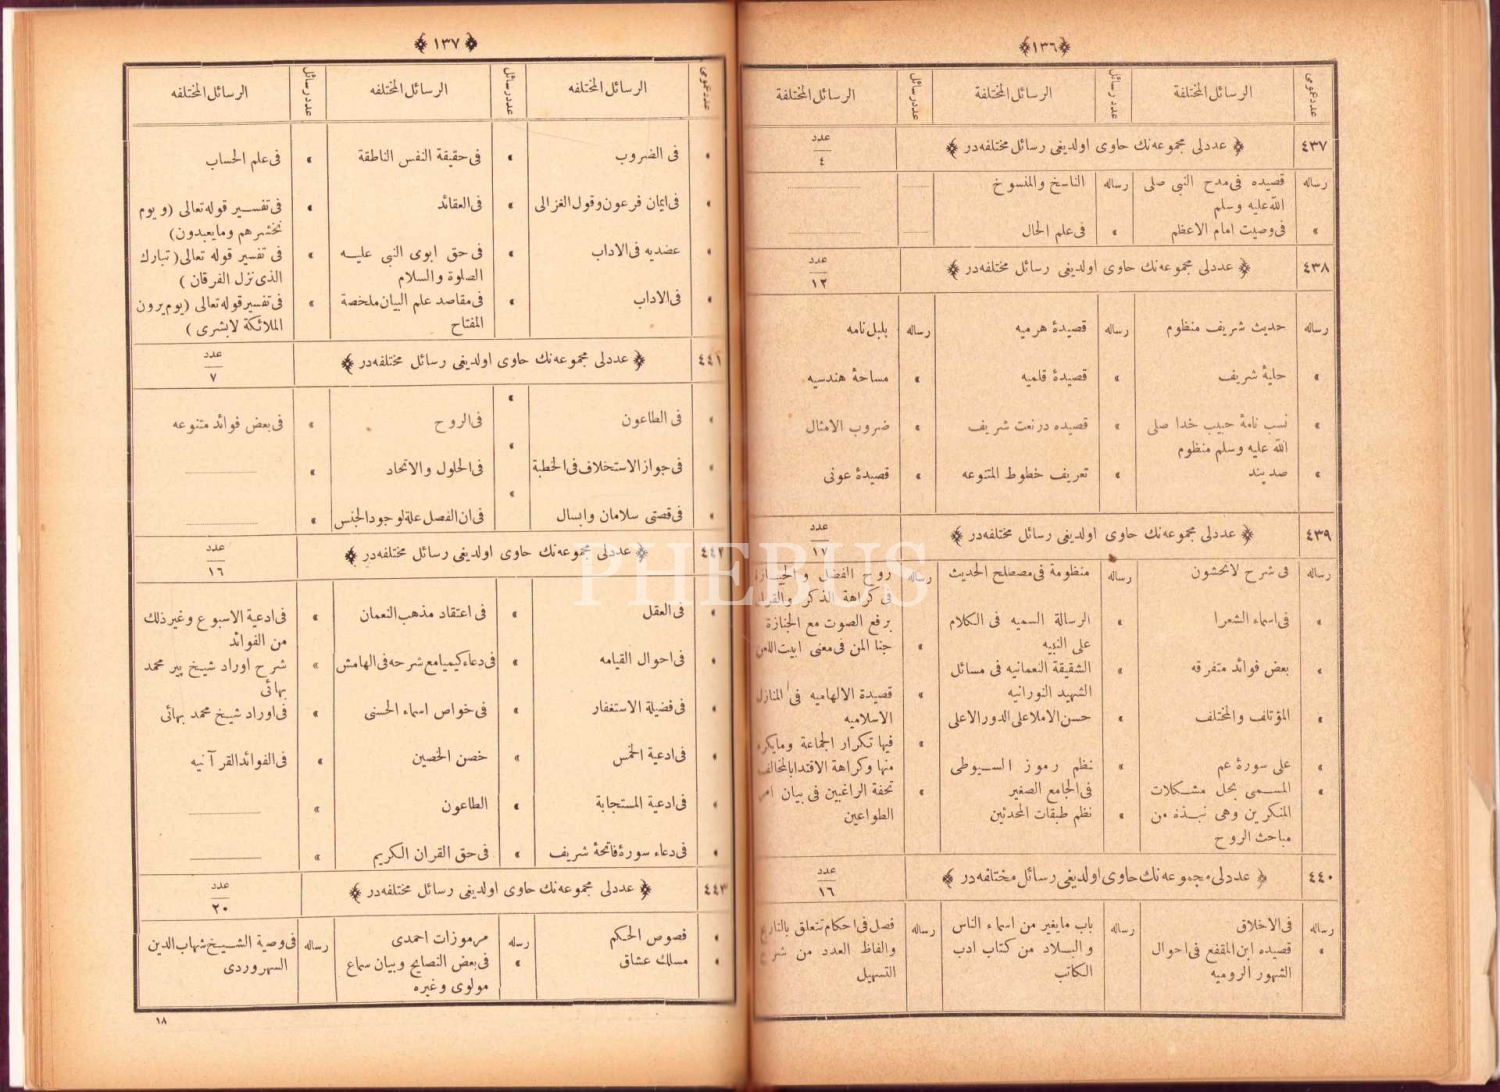 ﴿١٣٦﴾
عدد عمومى
الرسائل المختلفة
عدد رسائل
الرسائل المختلفة
عدد رسائل
الرسائل المختلفة
٤٣٧
﴿ عددلى مجموعه‌نك حاوى اولديغى رسائل مختلفه‌در ﴾
عدد
٤
رساله
قصيده فى مدح النبى صلى
الله عليه وسلم
رساله
الناسخ والمنسوخ
»
فى وصيت امام الاعظم
»
فى علم الحال
٤٣٨
﴿ عددلى مجموعه‌نك حاوى اولديغى رسائل مختلفه‌در ﴾
عدد
١٢
رساله
حديث شريف منظوم
رساله
قصيدهٔ هرميه
رساله
بلبل نامه
»
حليهٔ شريف
»
قصيدهٔ قلميه
»
مساحهٔ هندسيه
»
نسب نامهٔ حبيب خدا صلى
الله عليه وسلم منظوم
»
قصيده در نعت شريف
»
ضروب الامثال
»
صد پند
»
تعريف خطوط المتنوعه
»
قصيدهٔ عونى
٤٣٩
﴿ عددلى مجموعه‌نك حاوى اولديغى رسائل مختلفه‌در ﴾
عدد
١٧
رساله
فى شرح لانحشون
رساله
منظومة فى مصطلح الحديث
رساله
روح الفضل و
فى كراهة الذكر
برفع الصوت مع الجنازة
»
فى اسماء الشعرا
»
الرسالة السميه فى الكلام
على النبيه
»
جنا المن فى معنى ابيت
»
بعض فوائد متفرقه
»
الشقيقة النعمانيه فى مسائل
الشهيد النورانيه
»
قصيدة الالهاميه فى المنازل
الاسلاميه
»
المؤتلف والمختلف
»
حسن الاملا على الدور الاعلى
»
فيها تكرار الجماعة ومايكره
منها وكراهة الاقتدا بالمخالف
»
على سورهٔ عم
»
نظم رموز السيوطى
فى الجامع الصغير
»
تحفة الراغبين فى بيان امر
الطواعين
»
المسمى بحل مشكلات
المنكرين وهى نبذه من
مباحث الروح
»
نظم طبقات المحدثين
٤٤٠
﴿ عددلى مجموعه‌نك حاوى اولديغى رسائل مختلفه‌در ﴾
عدد
١٦
رساله
فى الاخلاق
رساله
باب مايغير من اسماء الناس
والبلاد من كتاب ادب
الكاتب
رساله
فصل فى احكام تتعلق بالتاريخ
والفاظ العدد من شرح
التسهيل
»
قصيده ابن المقفع فى احوال
الشهور الروميه
﴿ ١٣٧ ﴾
عدد عمومى
الرسائل المختلفه
عدد رسائل
الرسائل المختلفه
عدد رسائل
الرسائل المختلفه
»
فى الضروب
»
فى حقيقة النفس الناطقة
»
فى علم الحساب
»
فى ايمان فرعون وقول الغزالى
»
فى العقائد
»
فى تفسير قوله تعالى (ويوم
نحشرهم ومايعبدون)
»
عضديه فى الاداب
»
فى حق ابوى النبى عليه
الصلوة والسلام
»
فى تفسير قوله تعالى (تبارك
الذى نزل الفرقان)
»
فى الاداب
»
فى مقاصد علم البيان ملخصة
المفتاح
»
فى تفسير قوله تعالى (يوم يرون
الملائكة لابشرى)
٤٤١
﴿ عددلى مجموعه‌نك حاوى اولديغى رسائل مختلفه‌در ﴾
عدد
٧
»
فى الطاعون
»
فى الروح
»
فى بعض فوائد متنوعه
»
فى جواز الاستخلاف فى الخطبة
»
فى الحلول والاتحاد
»
»
فى قصتى سلامان وابسال
»
فى ان الفصل علة لوجود الجنس
»
٤٤٢
﴿ عددلى مجموعه‌نك حاوى اولديغى رسائل مختلفه‌در ﴾
عدد
١٦
»
فى العقل
»
فى اعتقاد مذهب النعمان
»
فى ادعية الاسبوع وغير ذلك
من الفوائد
»
فى احوال القيامه
»
فى دعاء كيميا مع شرحه فى الهامش
»
شرح اوراد شيخ پير محمد
بهائى
»
فى فضيلة الاستغفار
»
فى خواص اسماء الحسنى
»
فى اوراد شيخ محمد بهائى
»
فى ادعية الخمس
»
خصن الخصين
»
فى الفوائد القرآنيه
»
فى ادعية المستجابة
»
الطاعون
»
»
فى دعاء سورهٔ فاتحهٔ شريف
»
فى حق القران الكريم
»
٤٤٣
﴿ عددلى مجموعه‌نك حاوى اولديغى رسائل مختلفه‌در ﴾
عدد
٢٠
»
فصوص الحكم
رساله
مرموزات احمدى
رساله
فى وصية الشيخ شهاب الدين
السهروردى
»
مسلك عشاق
»
فى بعض النصايح وبيان سماع
مولوى وغيره
١٨
PHEBUS